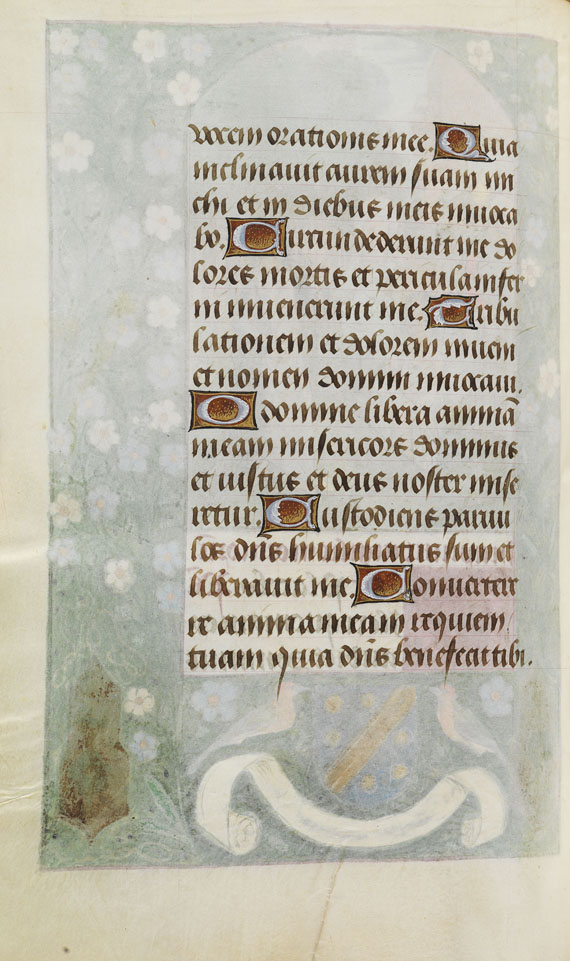 vocem orationis mee. Quia
inclinauit aurem suam mi
chi et in diebus meis inuoca
bo. Circundederunt me do
lores mortis et pericula infer
ni inuenerunt me. Tribu
lationem et dolorem inueni
et nomen domini inuocaui.
O domine libera animā
meam misericors dominus
et iustus et deus noster mise
retur. Custodiens paruu
los dn̄s humiliatus sum et
liberauit me. Conuerter
re anima mea in requiem
tuam quia dn̄s benefecit tibi.